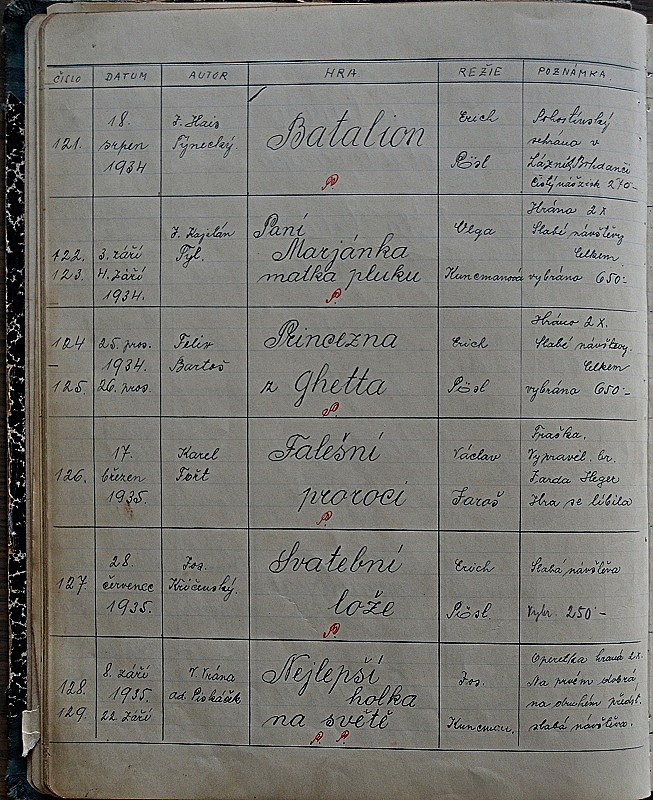 ČÍSLO DATUM AUTOR HRA REŽIE POZNÁMKA
121.
18.
srpen
1934
J. Hais
Týnecký.
Batalion
Erich
Rösl
Pohostinský
sehráno v
Lázních Bohdanči
Čistý 270-
122.
123.
3. září
4. září
1934.
J. Kajetán
Tyl.
Paní
Marjánka
matka pluku
Olga
Kuncmanová
Hráno 2x
Slabé návštěvy
Celkem
vybráno 650-
124
125.
25. pros.
1934.
26. pros.
Felix
Bartoš
Princezna
z ghetta
Erich
Rösl
Hráno 2x.
Slabé návštevy.
Celkem
vybráno 650-
126.
17.
březen
1935.
Karel
Fořt
Falešní
proroci
Václav
Faroš
Fraška.
Vypravěl. br.
Jarda Heger
Hra se líbila
127.
28.
červenec
1935.
Jos.
Křičenský.
Svatební
lože
Erich
Rösl.
Slabá návštěva
Vybr. 250-
128.
129.
8. září
1935.
22. září
V. Vrána
ad. Piskáček
Nejlepší
holka
na světě
Jos.
Kuncman.
Operetka hraná 2x.
Na prvém dobrá
na druhém předst.
slabá návštěva.